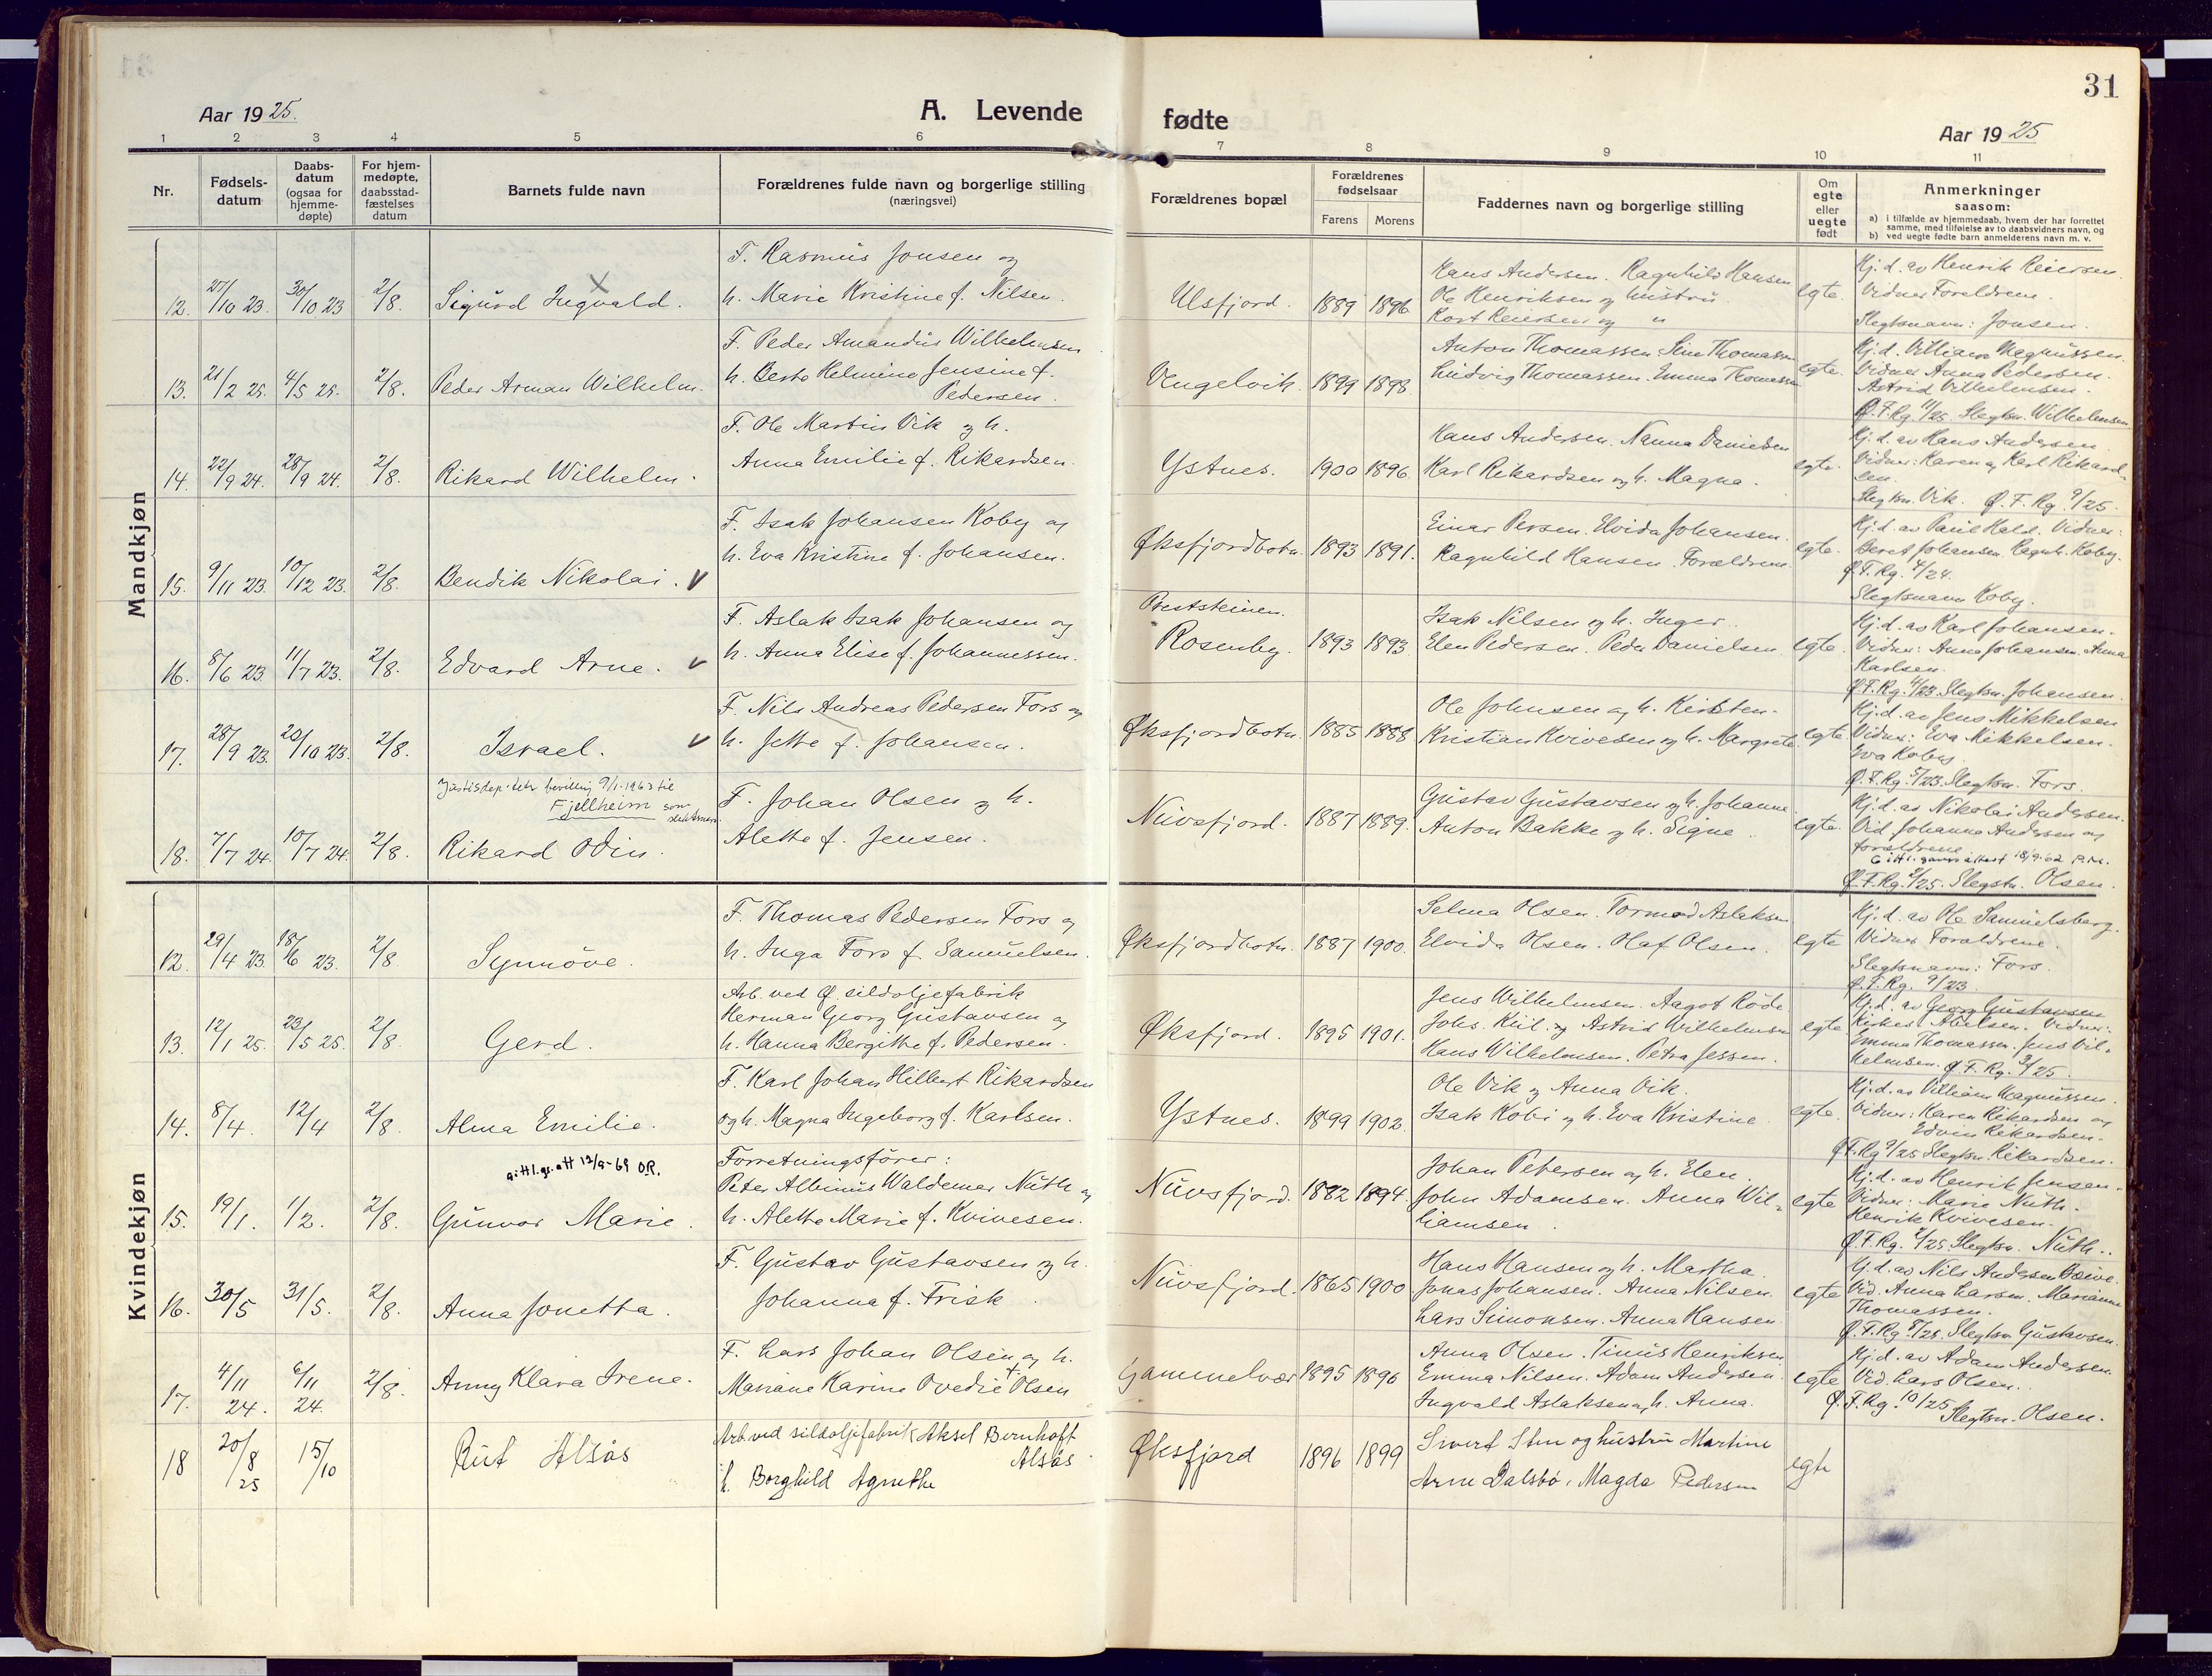 31
Aar 1925.
A. Levende fødte
Aar 1925
1 2 3 4 5 6 7 8 9 10 11
Nr.
Fødsels-
datum
Daabs-
datum
(ogsaa for
hjemme-
døpte)
For hjem-
medøpte,
daabsstad-
fæstelses
datum
Barnets fulde navn
Forældrenes fulde navn og borgerlige stilling
(næringsvei)
Forældrenes bopæl
Forældrenes
fødselsaar
Farens Morens
Faddernes navn og borgerlige stilling
Om
egte
eller
uegte
født
Anmerkninger
saasom:
a) i tilfælde av hjemmedaab, hvem der har forrettet
samme, med tilføielse av to daabsvidners navn, og
b) ved uegte fødte barn anmelderens navn m. v.
Mandkjøn
12. 27/10 23. 30/10 23 2/8. Sigurd Ingvald.
F. Rasmus Jonsen og
h. Marie Kristine f. Nilsen.
Ulsfjord. 1889 1896
Hans Andersen. Ragnhild Hansen
Ole Henriksen og hustru
Kort Reiersen og "
egte.
Hj. d. av Henrik Reiersen.
Vidner Foreldrene.
Slegtsnavn: Jonsen.
13. 21/2 25. 4/5 25. 2/8. Peder Arman Wilhelm.
F. Peder Amandus Wilhelmsen
h. Berte Helmine Jensine f.
Pedersen.
Vengelvik. 1899 1898
Anton Thomassen Sine Thomassen
Ludvig Thomassen. Emma Thomassen
egte.
Hj. d. Villiam Magnussen.
Vidner Anna Pedersen.
Astrid Vilhelmsen.
Ø. F. Rg. 11/25 Slegtsn. Wilhelmsen
14. 22/9 24. 28/9 24. 2/8. Rikard Wilhelm.
F. Ole Martin Vik og h.
Anna Emilie f. Rikardsen.
Ystnes. 1900 1896.
Hans Andersen. Nanna Danielsen
Karl Rikardsen og h. Magna.
egte.
Hj. d. av Hans Andersen
Vidner: Karen og Karl Rikard-
sen.
Slegtsn. Vik. Ø. F. Rg. 9/25.
15. 9/11 23. 10/12 23. 2/8. Bendik Nikolai. V
F. Isak Johansen Koby og
h. Eva Kristine f. Johansen.
Øksfjordbotn. 1893 1891.
Einar Persen. Elvida Johansen.
Ragnhild Hansen. Forældrene
egte.
Hj. d. av Paul Hald. Vidner:
Beret Johansen Ragnh. Koby.
Ø. F. Rg. 4/24.
Slegtsnavn Koby.
16. 8/6 23. 11/7 23. 2/8. Edvard Arne. V
F. Aslak Isak Johansen og
h. Anna Elise f. Johannessen.
Preststeinen.
Rosenby. 1893 1893
Isak Nilsen og h. Inger.
Elen Pedersen. Peder Danielsen.
egte.
Hj. d. av Karl Johansen.
Vidner: Anna Johansen. Anna
Karlsen.
Ø. F. Rg. 4/23. Slegtsn. Johansen.
17. 28/9 23. 20/10 23. 2/8. Israel. V
F. Nils Andreas Pedersen Fors og
h. Jette f. Johansen.
Øksfjordbotn. 1885 1888
Ole Johnsen og h. Kirsten.
Kristian Kvivesen og h. Margrete
egte
Hj. d. av Jens Mikkelsen
Vidner: Eva Mikkelsen.
Eva Koby.
Ø. F. Rg. 5/23. Slegtsn. Fors.
Justisdep.tets bevilling 9/1-1963 til
Fjellheim som
slektsnavn.
18. 7/7 24. 10/7 24. 2/8. Rikard Odin.
F. Johan Olsen og h.
Alette f. Jensen.
Nuvsfjord. 1887 1889.
Gustav Gustavsen og h. Johanne.
Anton Bakke og h. Signe.
egte.
Hj. d. av Nikolai Andersen.
Vid. Johanna Andersen og
foreldrene.
Gitt l. navneattest 18/9-62
Ø. F. Rg. 2/25. Slegtsn. Olsen.
Kvindekjøn
12. 29/4 23. 18/6 23. 2/8 Synnöve.
F. Thomas Pedersen Fors og
h. Inga Fors f. Samuelsen.
Øksfjordbotn. 1887 1900.
Selma Olsen. Tormod Aslaksen
Elvida Olsen. Olaf Olsen.
egte
Hj. d. av Ole Samuelsberg.
Vidner Foreldrene.
Slegtsnavn: Fors.
Ø. F. Rg. 9/23.
13. 12/1 25. 23/5 25. 2/8 Gerd.
Arb. ved Ø. sildoljefabrik
Herman Georg Gustavsen og
h. Hanna Bergitte f. Pedersen.
Øksfjord. 1895 1901.
Jens Wilhelmsen. Aagot Röde
Johs. Kiil. og Astrid Wilhelmsen
Hans Wilhelmsen. Petra Jessen.
egte
Hj. d. av Georg Gustavsen
Kirkes. Abelsen. Vidner:
Emma Thomassen. Jens Vil-
helmsen. Ø. F. Rg. 3/25.
14. 8/4. 12/4 2/8 Alma Emilie.
F. Karl Johan Hilbert Rikardsen
og h. Magna Ingeborg f. Karlsen.
Ystnes. 1899 1902.
Ole Vik og Anna Vik.
Isak Kobi og h. Eva Kristine
egte
Hj. d. av Villiam Magnussen.
Vidner: Karen Rikardsen og
Edvin Rikardsen.
Ø. F. Rg 9/25 Slegtsn. Rikardsen.
gitt l. gr. att 12/9-69 O.R.
15. 19/1. 1/2. 2/8. Gunvor Marie.
Forretningsfører:
Peter Albinus Waldemar Nuth og
h. Alette Marie f. Kvivesen.
Nuvsfjord. 1882 1894.
Johan Petersen og h. Elen.
John Adamsen. Anna Wil-
liamsen.
egte
Hj. d. av Henrik Jensen.
Vidner: Marie Nuth.
Henrik Kvivesen.
Ø. F. Rg. 2/25 Slegtsn. Nuth.
16. 30/5 31/5. 2/8. Anna Jonetta.
F. Gustav Gustavsen og h.
Johanna f. Frisk.
Nuvsfjord. 1865 1900
Hans Hansen og h. Martha.
Jonas Johansen. Anna Nilsen.
Lars Simonsen. Anna Hansen
egte
Hj. d. av Nils Andersen
Vid. Anna Larsen. Marianne
Thomassen.
Ø. F. Rg. 8/25. Slegtsn Gustavsen.
17. 4/11 24. 6/11 24. 2/8. Anny Klara Irene.
F. Lars Johan Olsen og h.
Mariane Karine Ovedie + Olsen
Gammelvær 1895 1896
Anna Olsen. Tinus Henriksen
Emma Nilsen. Adam Andersen.
Ingvald Aslaksen og h. Anna.
egte
Hj. d. av Adam Andersen.
Vid. Lars Olsen.
Ø. F. Rg. 10/25 Slegtsn. Olsen.
18 20/8 25 15/10 Rut Alsås
Arb. ved sildoljefabrik Aksel Bernhoft
Alsås.
h. Borghild Agnethe
Øksfjord 1896 1899
Sivert Sten og hustru Martine
Arne Dalsbö, Magda Pedersen
egte